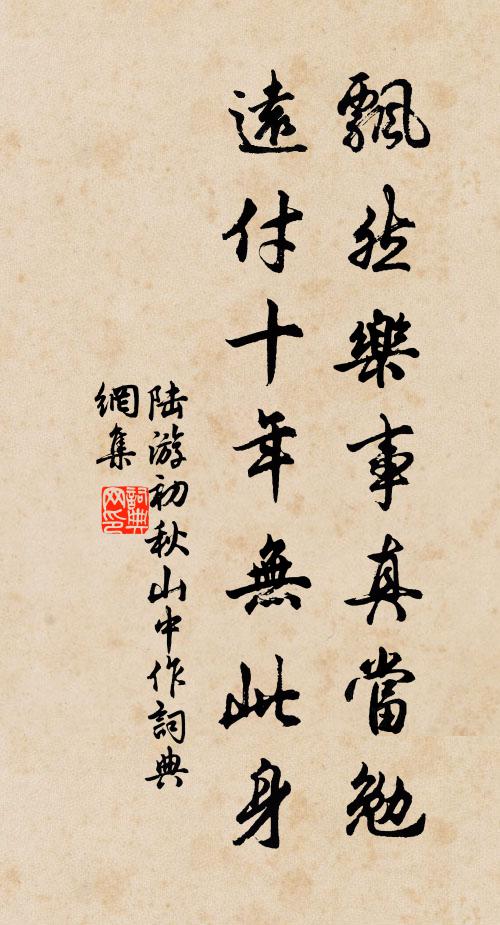 飄然樂事真當勉
遠付十年無此身
陸游初秋山中作詞典
網集
詞典
网印